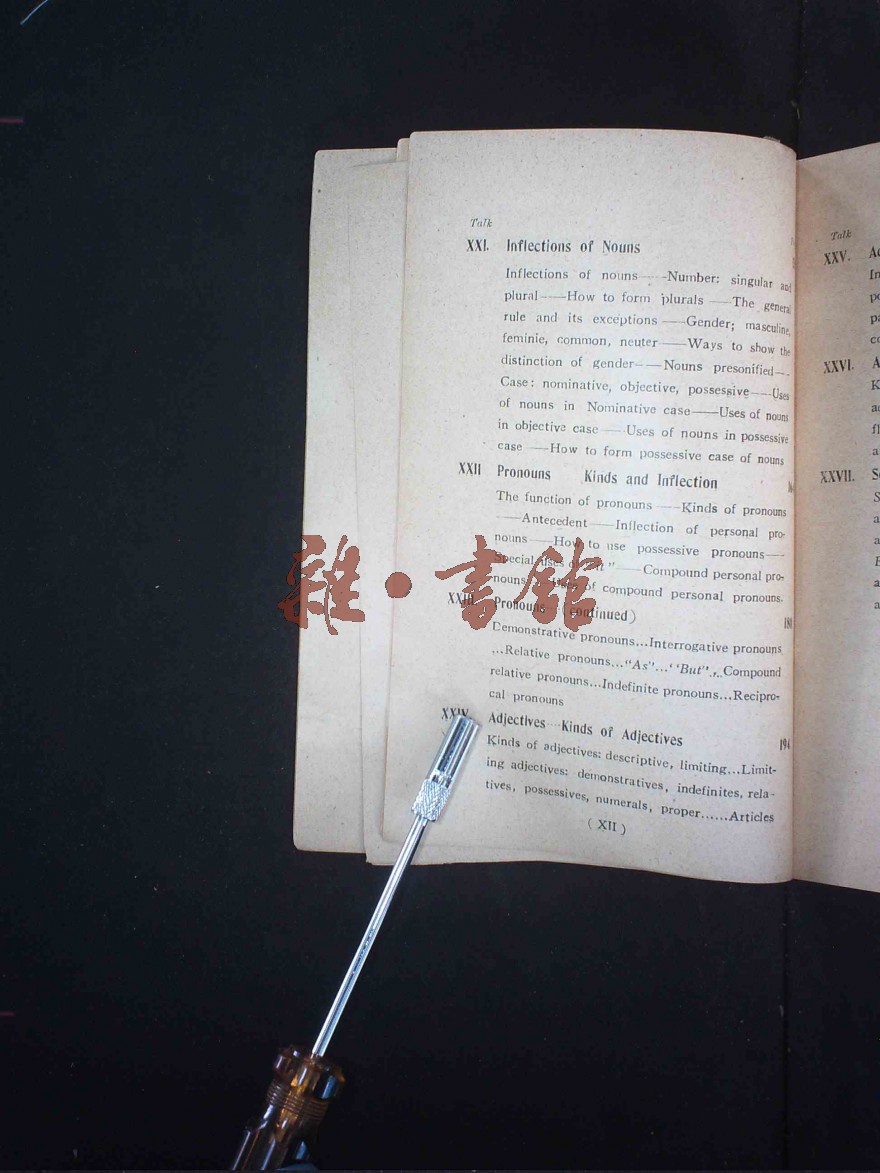 Talk
XXI. Inflections of Nouns
Inflections of nouns——Number: singular and
plural——How to form plurals——The general
rule and its exceptions——Gender; masculine,
feminie, common, neuter——Ways to show the
distinction of gender——Nouns presonified——
Case: nominative, objective, possessive——Uses
of nouns in Nominative case——Uses of nouns
in objective case——Uses of nouns in possessive
case——How to form possessive case of nouns
XXII Pronouns Kinds and Inflection
The function of pronouns——Kinds of pronouns
——Antecedent——Inflection of personal pro-
nouns——How to use possessive pronouns——
Special uses of "——Compound personal pro-
nouns of compound personal pronouns.
XXIII. Pronouns (continued) 180
Demonstrative pronouns...Interrogative pronouns
...Relative pronouns..."As"..."But"...Compound
relative pronouns...Indefinite pronouns...Recipro-
cal pronouns
XXIV. Adjectives Kinds of Adjectives 194
Kinds of adjectives: descriptive, limiting...Limit-
ing adjectives: demonstratives, indefinites, rela-
tives, possessives, numerals, proper......Articles
( XII )
Talk
XXV.
XXVI.
XXVII.
雜·書館